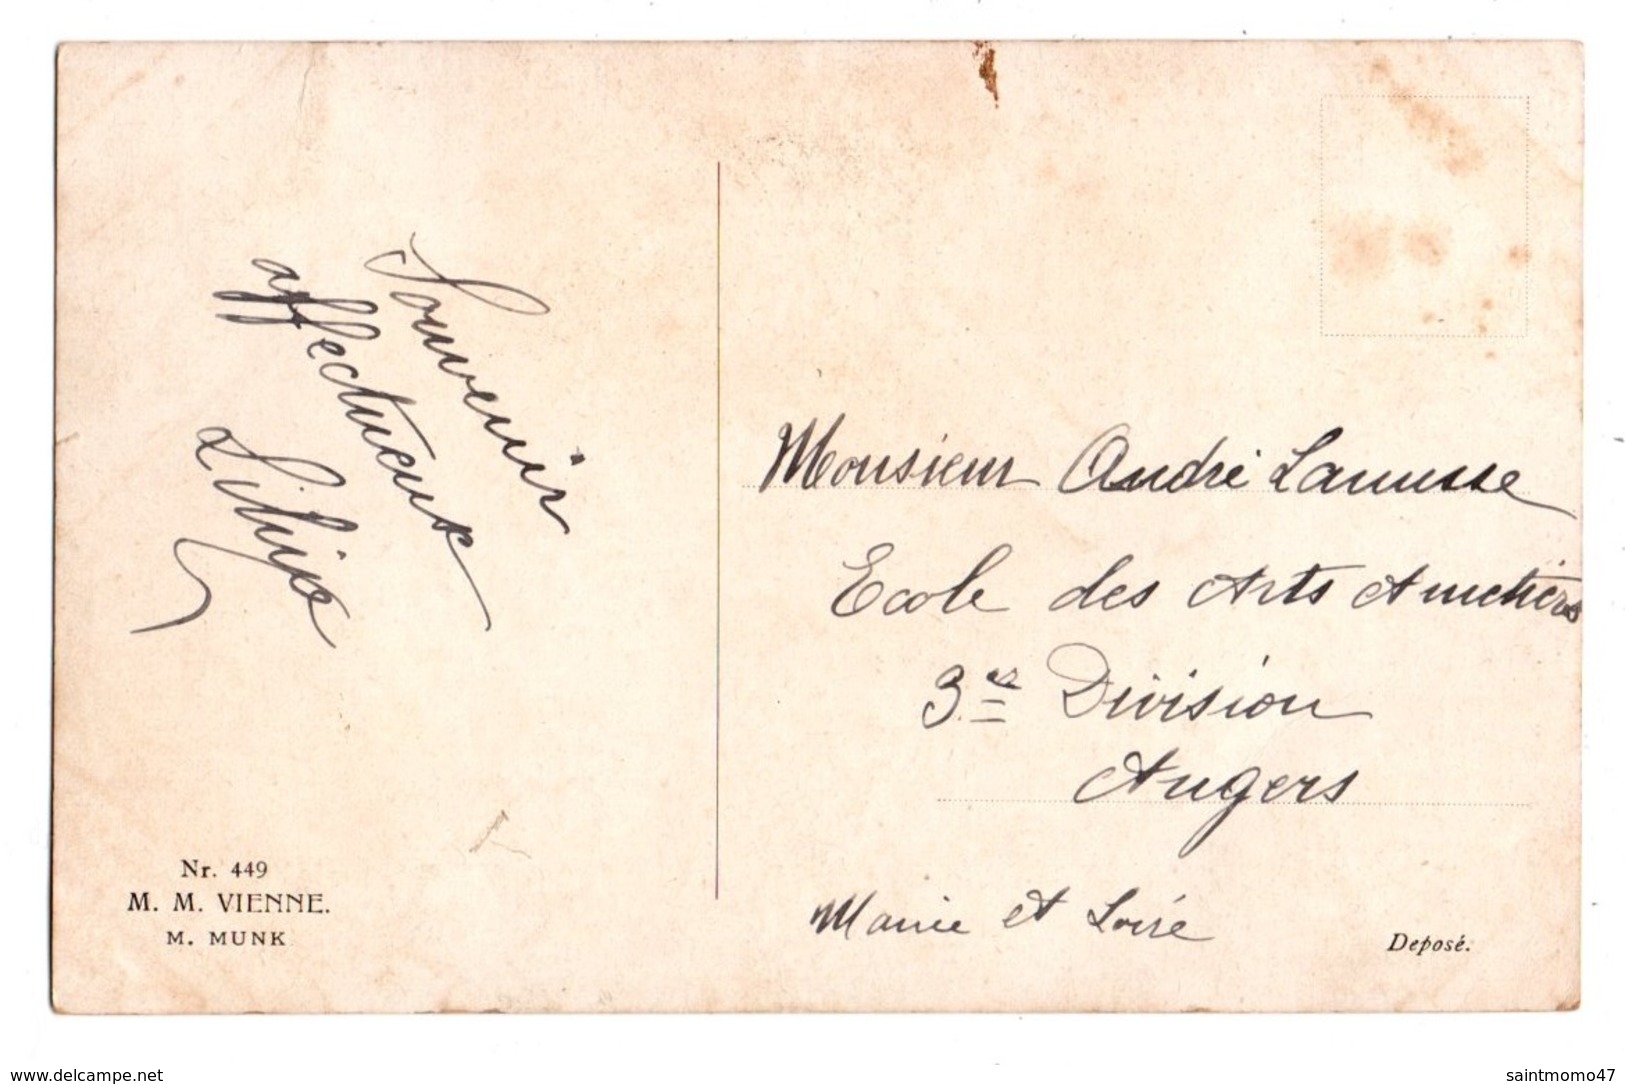 Souvenir
affectueux
Monsieur André Lamusse
Ecole des Arts et metiers
3er Division
Angers
Maine et Loire
Nr. 449
M. M. VIENNE.
M. MUNK
Deposé.
www.delcampe.net
saintmomo47